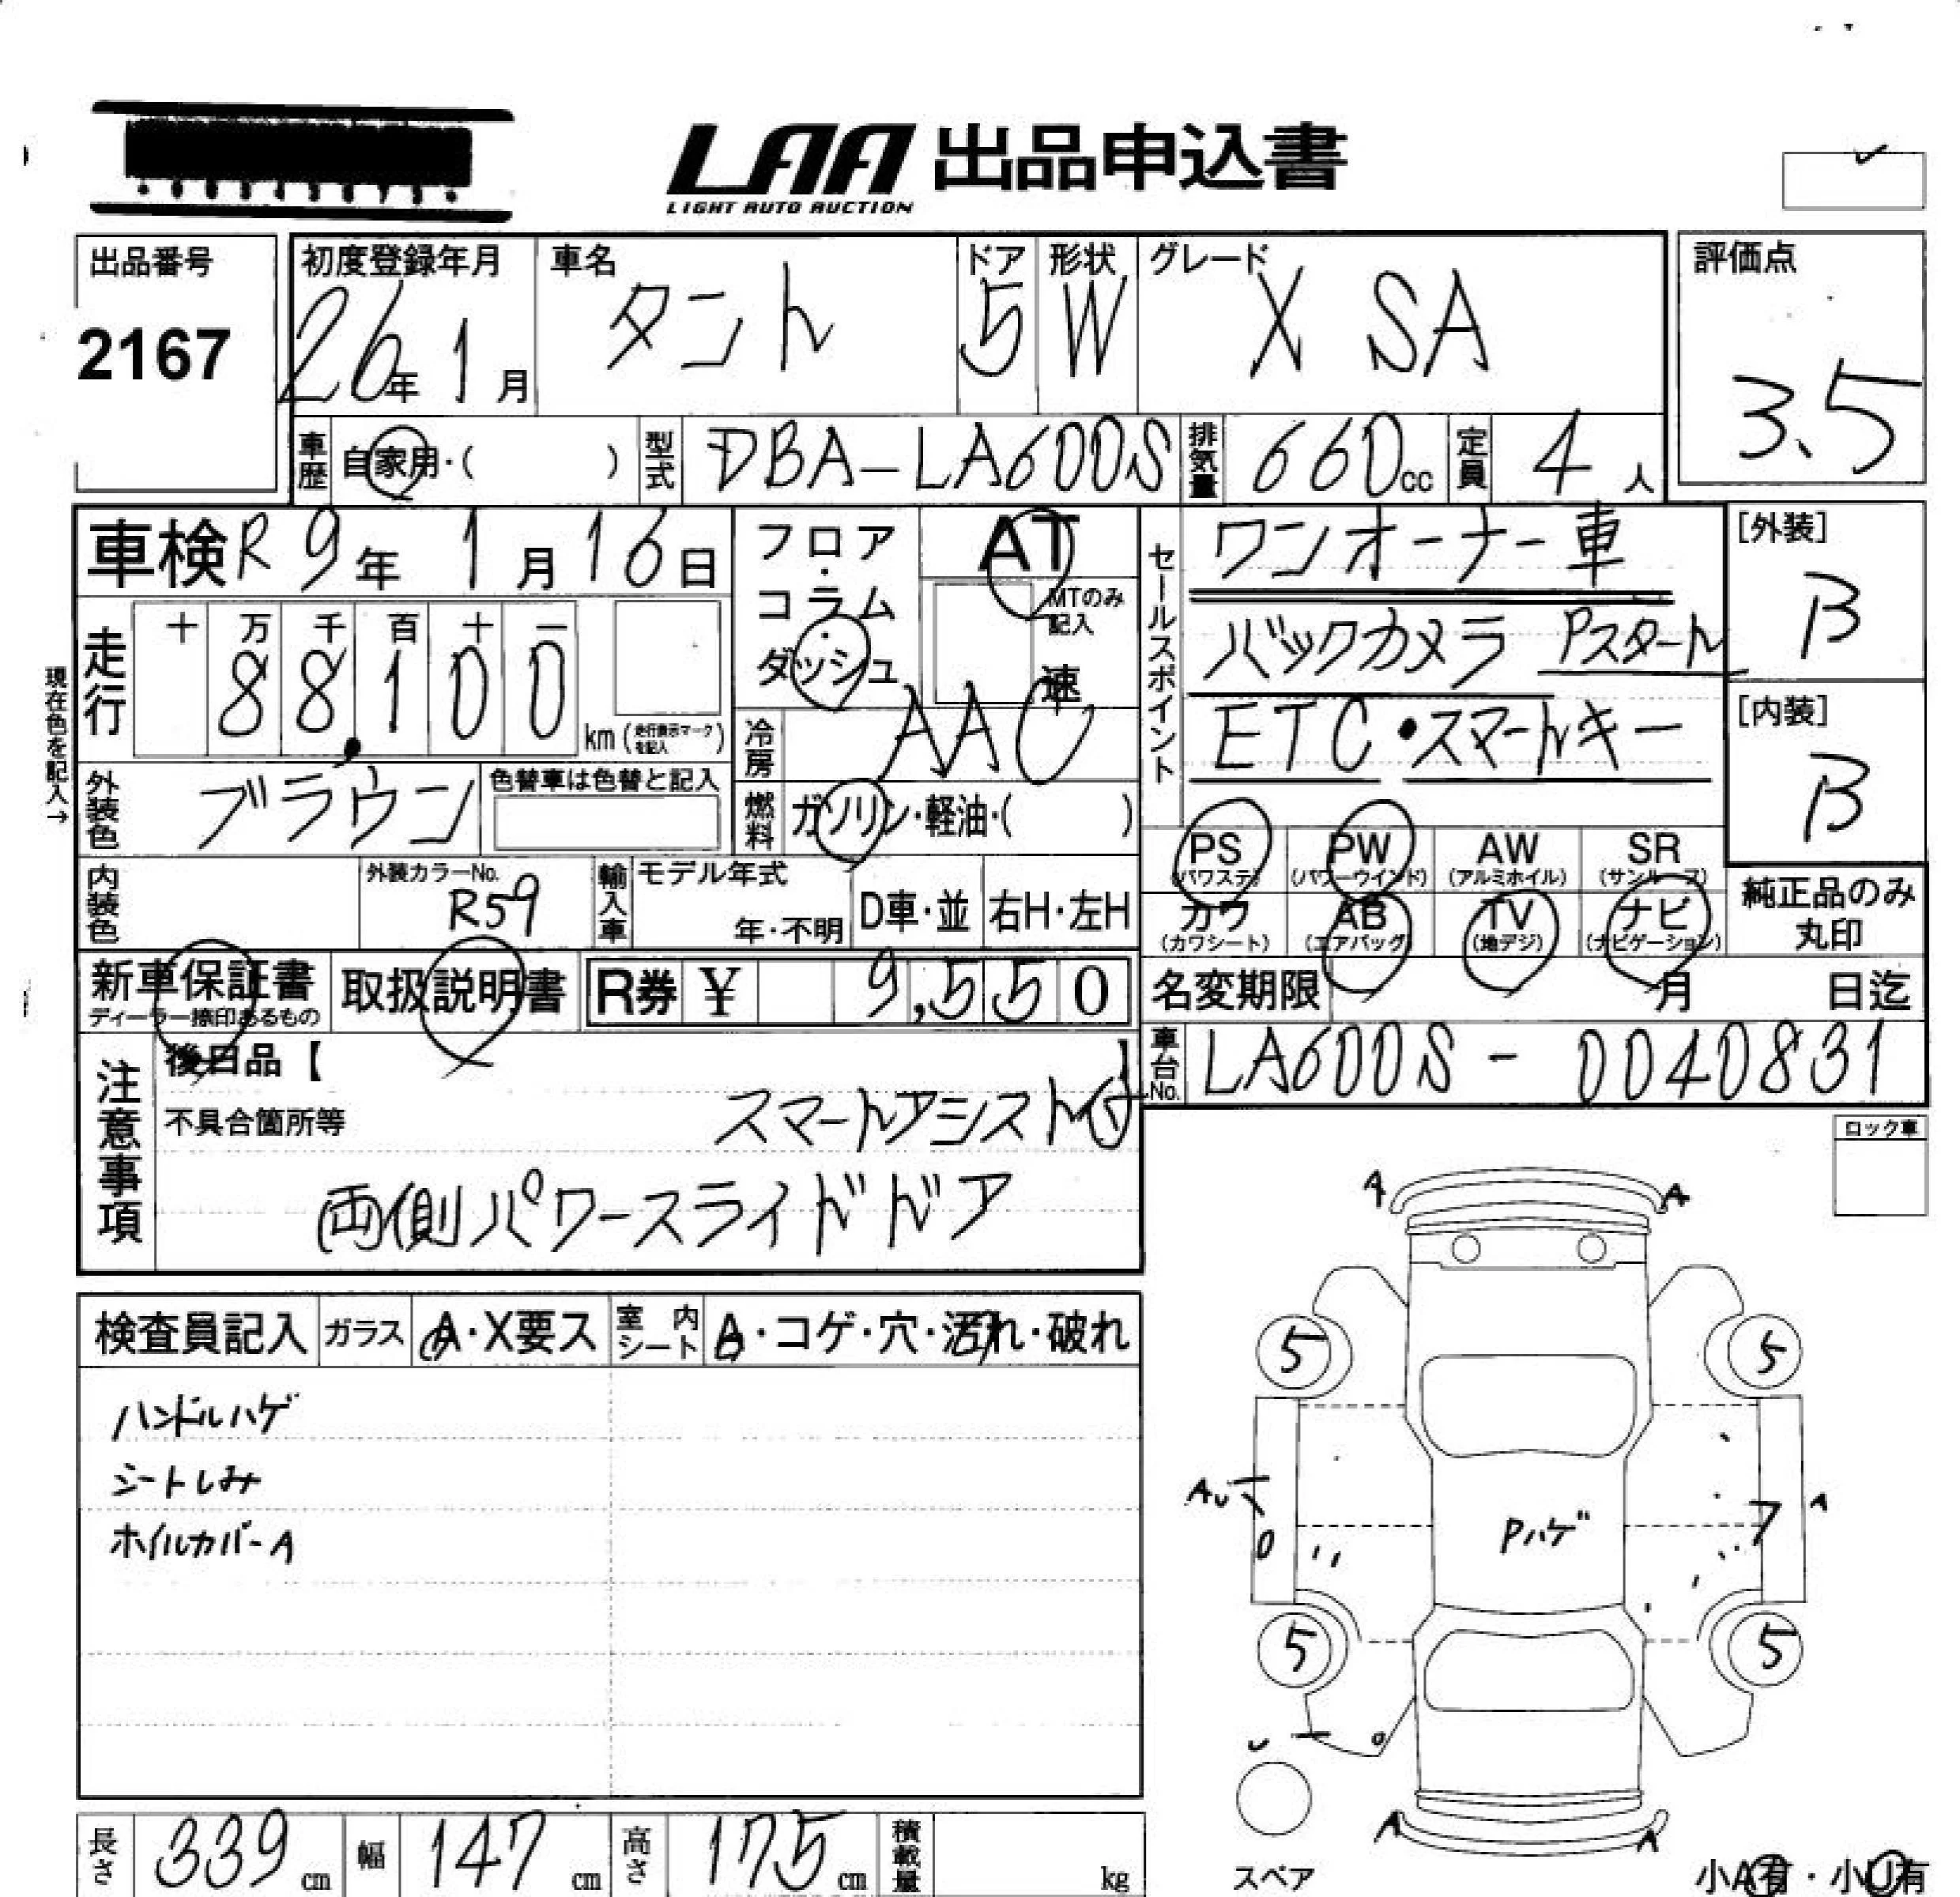 LAA 出品申込書
LIGHT AUTO AUCTION
出品番号
2167
初度登録年月
26年 1月
車名
タント
ドア
5
形状
W
グレード
X SA
評価点
3.5
車歴
自家用・( )
型式
DBA-LA600S
排気量
660cc
定員
4人
車検 R9年 1月16日
フロア・コラム・ダッシュ
AT
MTのみ記入
速
セールスポイント
ワンオーナー車
バックカメラ Pスタート
ETC・スマートキー
[外装]
B
[内装]
B
現在色を記入→
走行
十 万 千 百 十 一
88,100
km (走行表示マークを記入)
冷房
AAC
燃料
ガソリン・軽油・( )
外装色
ブラウン
色替車は色替と記入
内装色
外装カラーNo.
R59
輸入車
モデル年式
年・不明
D車・並
右H・左H
PS
(パワステ)
PW
(パワーウインド)
AW
(アルミホイル)
SR
(サンルーフ)
カワ
(カワシート)
AB
(エアバッグ)
TV
(地デジ)
ナビ
(ナビゲーション)
純正品のみ丸印
新車保証書
ディーラー捺印あるもの
取扱説明書
R券 ¥ 9,550
名変期限 月 日迄
車台No.
LA600S - 0040831
注意事項
後日品【 】
不具合箇所等
スマートアシスト付
両側パワースライドドア
ロック車
検査員記入
ガラス
A・X要ス
室内シート
A・コゲ・穴・汚れ・破れ
ハンドルハゲ
シートしみ
ホイルカバーA
A A
5 5
AU A
Pハゲ
7
5 5
U
A A
スペア
小A有・小U有
長さ 339cm
幅 147cm
高さ 175cm
積載量 kg